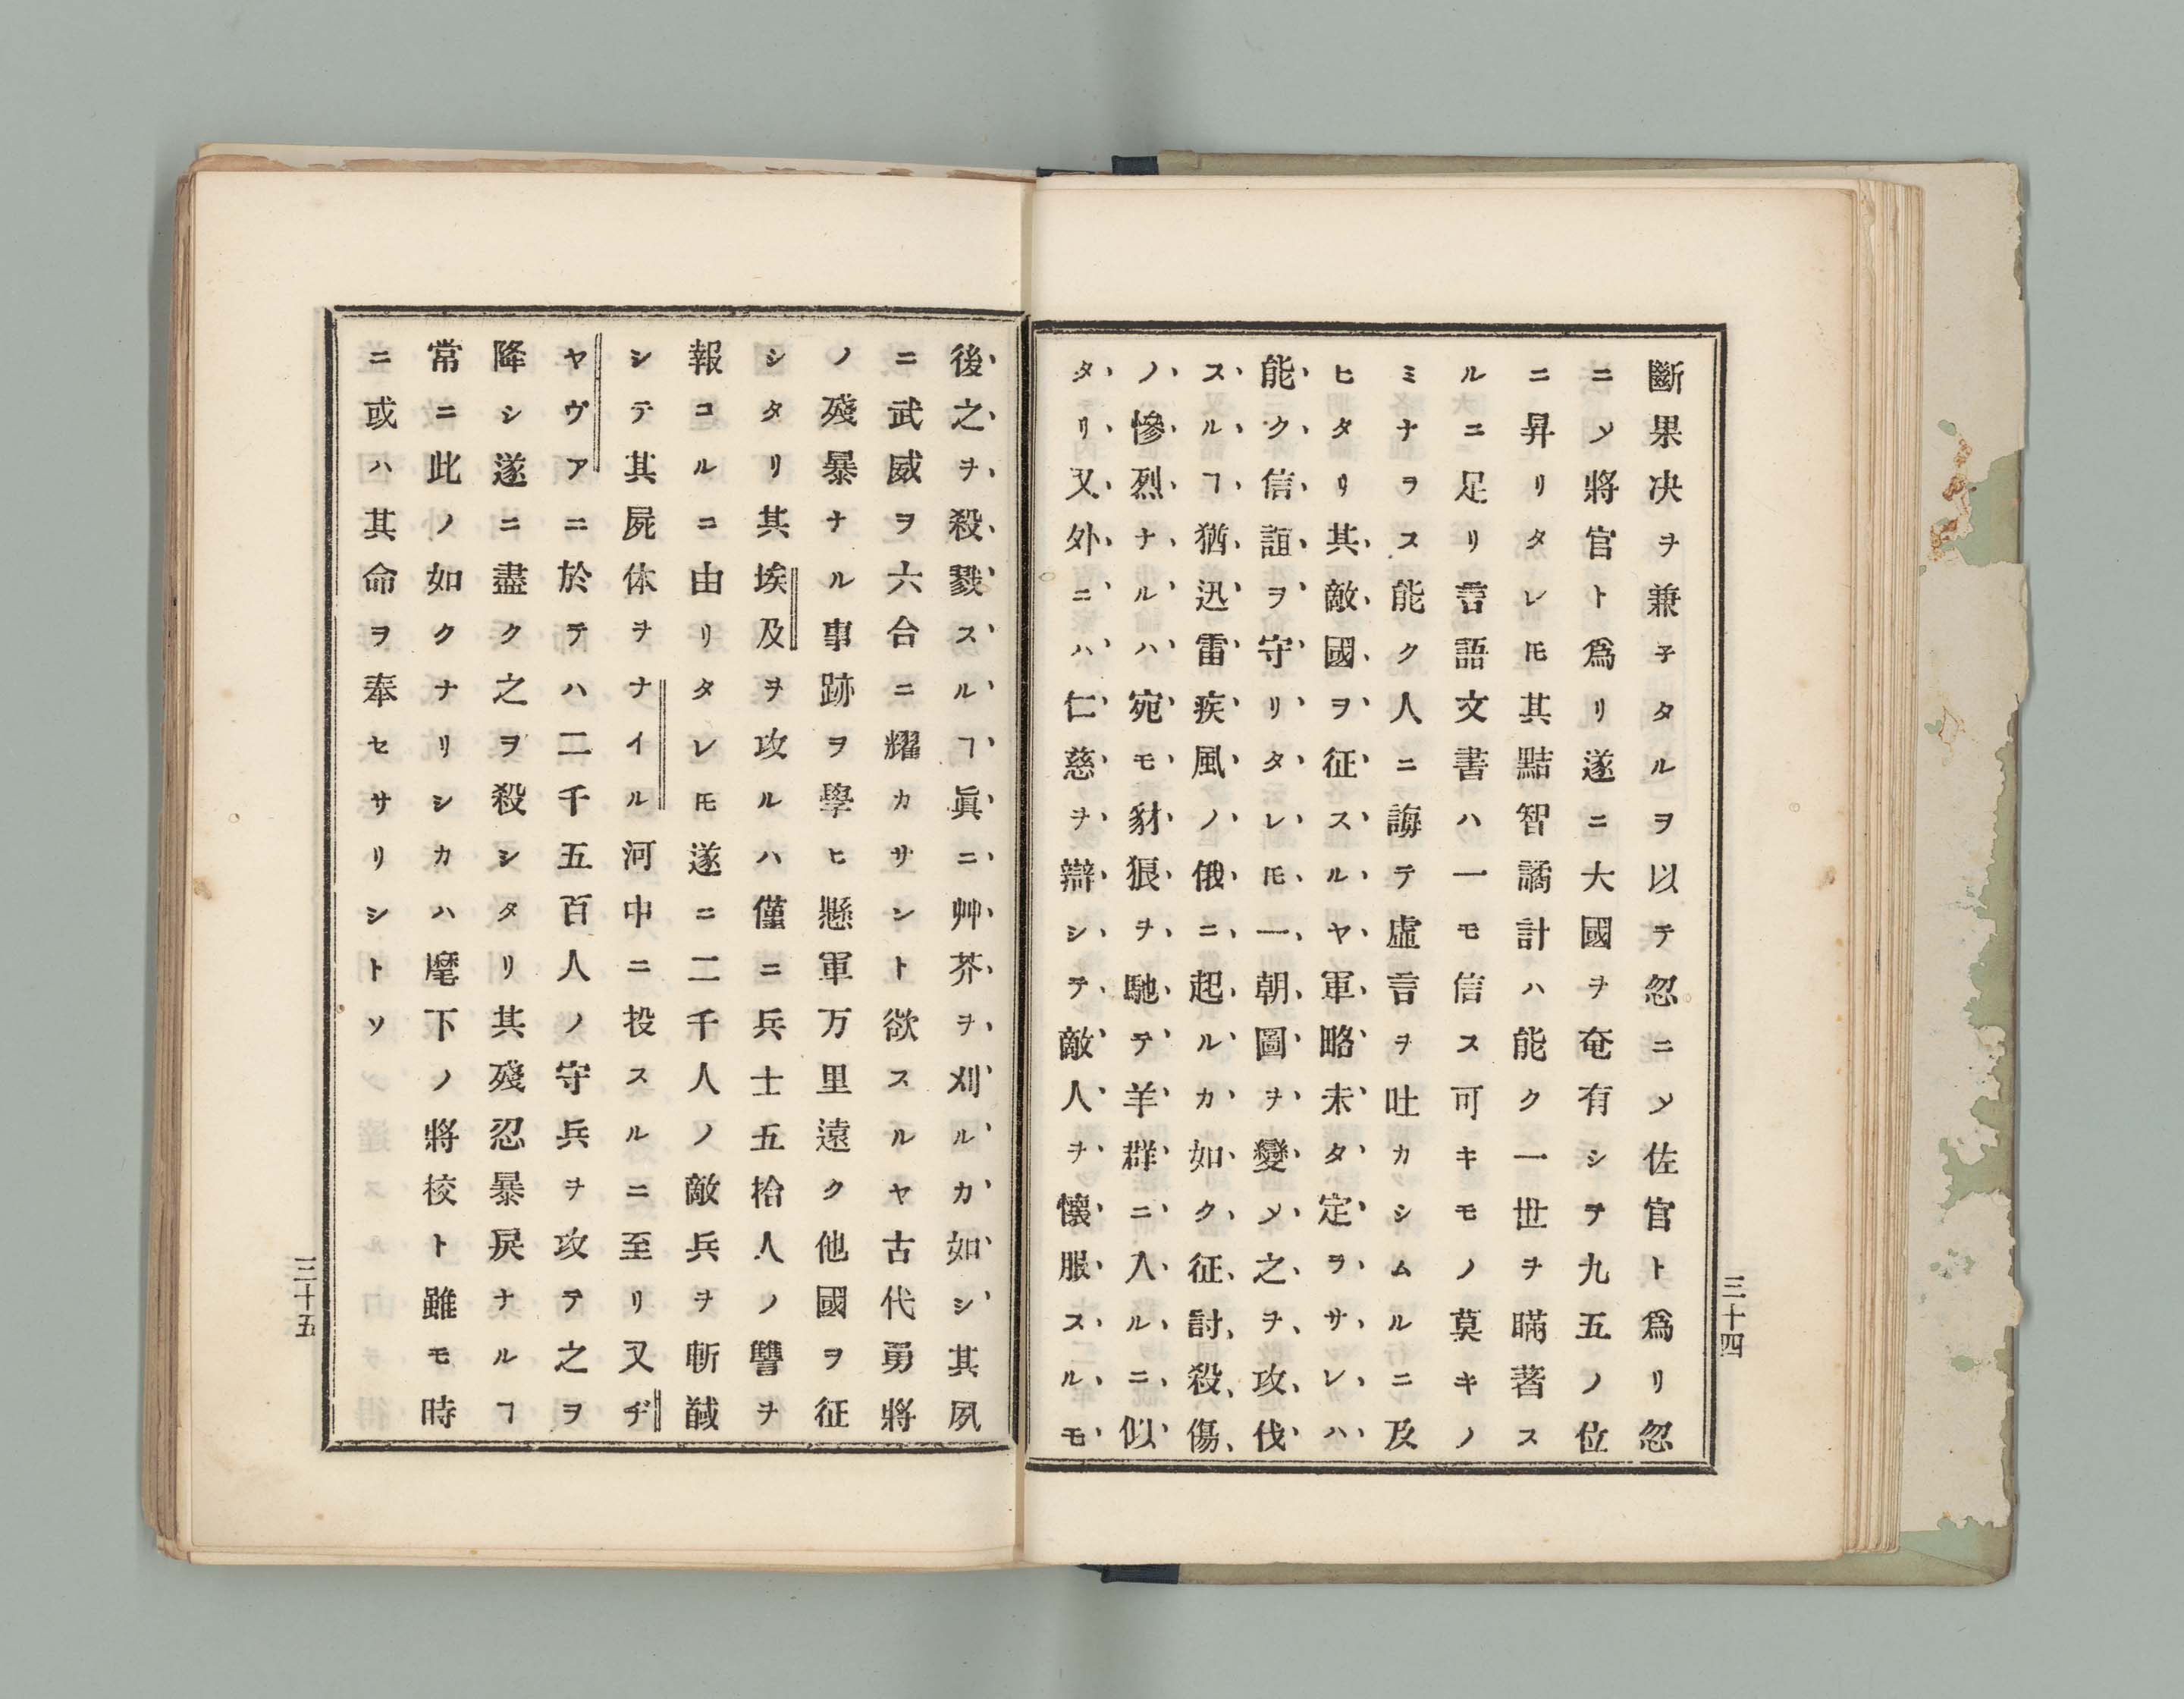 斷果决ヲ兼子タルヲ以テ忽ニシテ佐官ト爲リ忽
ニシテ將官ト爲リ遂ニ大國ヲ奄有シテ九五ノ位
ニ昇リタレ𪜈其黠智譎計ハ能ク一世ヲ瞞著ス
ルニ足リ言語文書ハ一モ信ス可キモノ莫キノ
ミナラス能ク人ニ誨テ虛言ヲ吐カシムルニ及
ヒタリ其敵國ヲ征スルヤ軍略未タ定ラサレハ
能ク信誼ヲ守リタレ𪜈一朝圖ヲ變〆之ヲ攻伐
スルヿ猶迅雷疾風ノ俄ニ起ルカ如ク征討殺傷
ノ慘烈ナルハ宛モ豺狼ヲ馳テ羊群ニ入ルニ似
タリ又外ニハ仁慈ヲ辯シテ敵人ヲ懷服スルモ
三十四
後之ヲ殺戮スルヿ眞ニ艸芥ヲ刈ルカ如シ其夙
ニ武威ヲ六合ニ耀カサント欲スルヤ古代勇將
ノ殘暴ナル事跡ヲ學ヒ懸軍万里遠ク他國ヲ征
シタリ其埃及ヲ攻ルハ僅ニ兵士五拾人ノ讐ヲ
報コルニ由リタレ𪜈遂ニ二千人ノ敵兵ヲ斬馘
シテ其屍体ヲナイル河中ニ投スルニ至リ又ヂ
ヤヴアニ於テハ二千五百人ノ守兵ヲ攻テ之ヲ
降シ遂ニ盡ク之ヲ殺シタリ其殘忍暴戾ナルヿ
常ニ此ノ如クナリシカハ麾下ノ將校ト雖モ時
ニ或ハ其命ヲ奉セサリシトソ
三十五